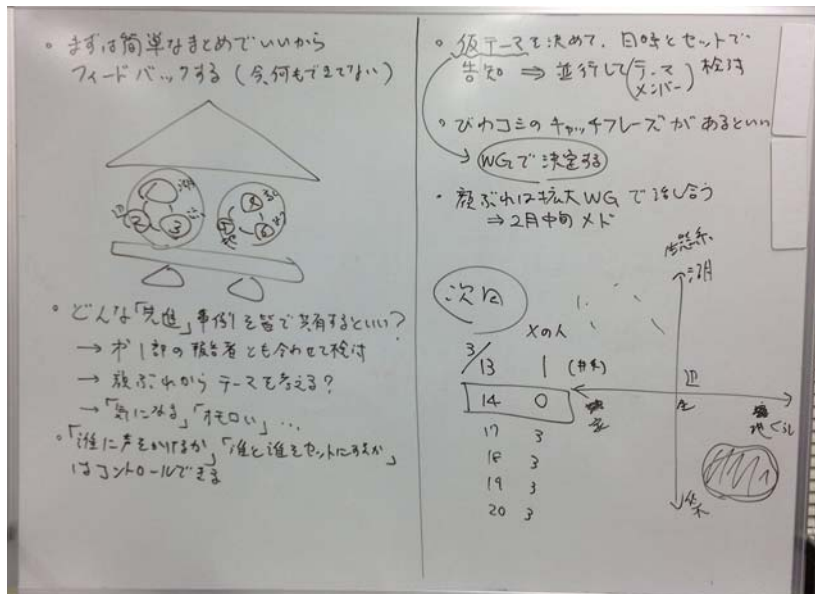 ・まずは簡単なまとめでいいから
フィードバックする (今、何もできてない)
2
3
・どんな「先進」事例を皆で共有するといい?
→ 才1部の報告者とも合わせて検討
→ 顔ぶれからテーマを考える?
→「気になる」「オモロい」…
・「誰に声をかけるか」「誰と誰をセットにするか」
はコントロールできる
・仮テーマを決めて、日時とセットで
告知 ⇒ 並行して(テーマ メンバー)検討
・びわコミのキャッチフレーズがあるといい
→ WGで決定する
・顔ぶれは拡大WGで話し合う
⇒ 2月中旬メド
次回
×の人
3/13 1
14 0
17 3
18 3
19 3
20 3
湖